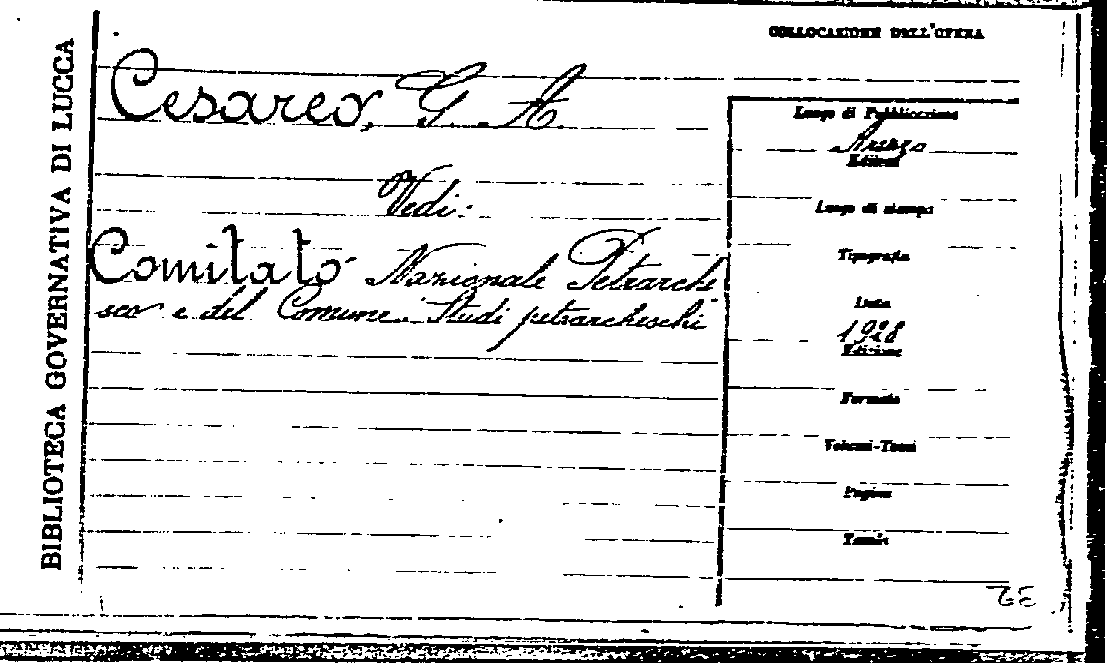 BIBLIOTECA GOVERNATIVA DI LUCCA
COLLOCAZIONE DELL'OPERA
Cesareo, G. A.
Vedi:
Comitato Nazionale Petrarche
sco e del Comune. Studi petrarcheschi
Luogo di Pubblicazione
Arezzo
Editore
Luogo di stampa
Tipografia
Data
1928
Edizione
Formato
Volumi-Tomi
Pagine
Tavole